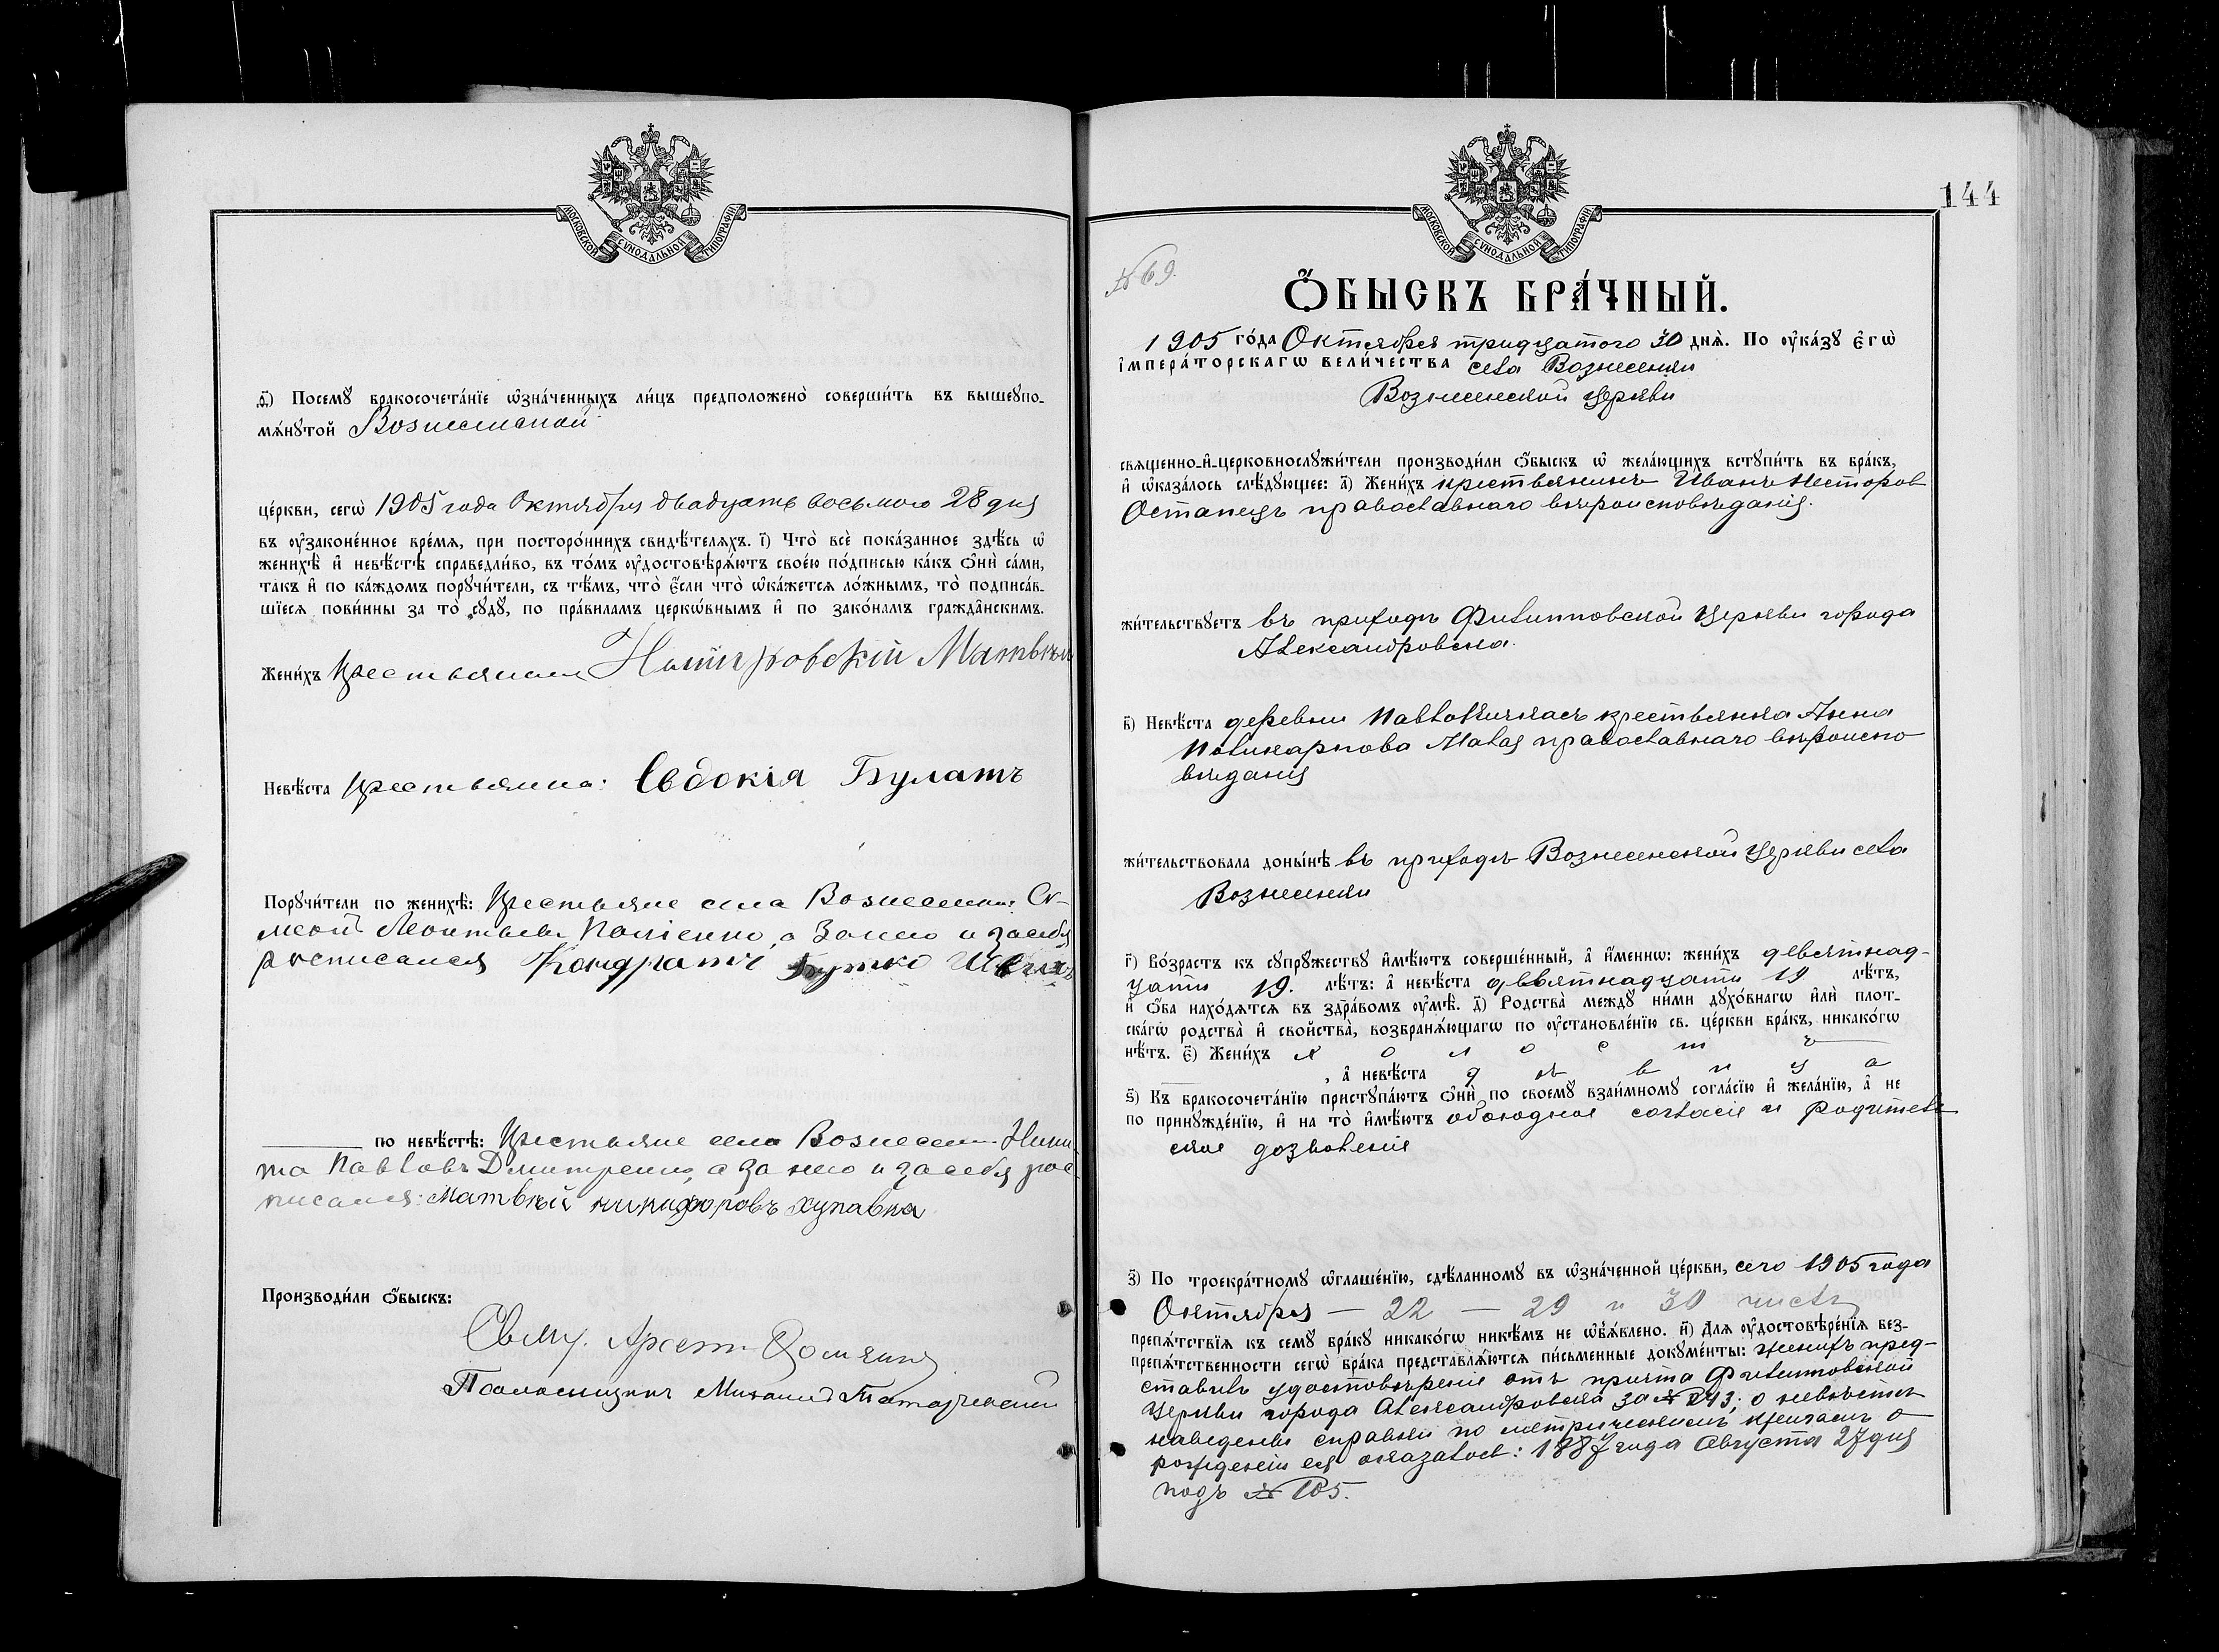 МОСКОВСКОЙ СѴНОДАЛЬНОЙ ТИПОГРАФІИ
д҃і) Посемꙋ бракосочета́нїе ѡ҆зна́ченныхъ ли́цъ предположено̀ соверши́ть въ вышеꙋпо-
мѧ́нꙋтой Вознесенской
це́ркви, сегѡ̀ 1905 года Октября двадцать восьмого 28 дня
въ ᲂу҆законе́нное вре́мѧ, при посторо́ннихъ свидѣ́телѧхъ. і҃) Что̀ всѐ пока́занное здѣ́сь ѡ҆
женихѣ̀ и҆ невѣ́стѣ справедли́во, въ то́мъ ᲂу҆достовѣрѧ́ютъ свое́ю по́дписью ка́къ ѻ҆нѝ са́ми,
та́къ и҆ по ка́ждомъ порꙋчи́тели, съ тѣ́мъ, что̀ є҆́сли что̀ ѡ҆ка́жетсѧ ло́жнымъ, то̀ подписа́в-
шїесѧ пови́нны за то̀ сꙋдꙋ̀, по пра́виламъ церкѡ́внымъ и҆ по зако́намъ гражда̑нскимъ.
Жени́хъ Крестьянинъ Матвѣй
Невѣ́ста Крестьянка: Евдокія Булатъ
Порꙋчи́тели по женихѣ̀: Крестьяне села Вознесенки: Си-
меонъ Леонтьевъ а за него и за себя
росписался Кондратъ Бутко
по невѣ́стѣ: Крестьяне села Вознесенки Ники-
та Павловъ Дмитренко, а за него и за себя рос-
писался: Матвѣй никифоровъ хупавка
Производи́ли ѻ҆́быскъ:
Свящ.
Псаломщикъ Михаилъ
144
МОСКОВСКОЙ СѴНОДАЛЬНОЙ ТИПОГРАФІИ
№ 69.
Ѻ҆́БЫСКЪ БРА́ЧНЫЙ.
1905 го́да Октября тридцатого 30 днѧ̀. По ᲂу҆ка́зꙋ є҆гѡ̀
і҆мпера́торскагѡ вели́чества села Вознесенки
Вознесенской церкви
свѧще́нно-и҆-церковнослꙋжи́тели производи́ли ѻ҆́быскъ ѡ҆ жела́ющихъ встꙋпи́ть въ бра́къ,
и҆ ѡ҆каза́лось слѣ́дꙋющее: а҃) Жени́хъ крестьянинъ Иванъ Несторовъ
Остапецъ православнаго вѣроисповѣданія.
жи́тельствꙋетъ въ приходѣ Филипповской церкви города
Александровска.
в҃) Невѣ́ста деревни Павлокичкасъ крестьянка Анна
Поликарпова Малая православнаго вѣроиспо-
вѣданія
жи́тельствовала доны́нѣ въ приходѣ Вознесенской церкви села
Вознесенки
г҃) Во́зрастъ къ сꙋпрꙋ́жествꙋ и҆мѣ́ютъ соверше́нный, а҆ и҆́меннѡ: жени́хъ девятнад-
цати 19. лѣ́тъ: а҆ невѣ́ста девятнадцати 19 лѣ́тъ,
и҆ ѻ҆́ба нахо́дѧтсѧ въ здра́вомъ ᲂу҆мѣ̀. д҃) Родства̀ междꙋ̀ ни́ми дꙋхо́внагѡ и҆лѝ плот-
ска́гѡ родства̀ и҆ сво́йства̀, возбранѧ́ющагѡ по ᲂу҆становле́нїю св. це́ркви бра́къ, никако́гѡ
нѣ́тъ. є҃) Жени́хъ холостъ
, а҆ невѣ́ста дѣвица
ѕ҃) Къ бракосочета́нїю пристꙋпа́ютъ ѻ҆нѝ по своемꙋ̀ взаи́мномꙋ согла́сїю и҆ жела́нїю, а҆ не
по принꙋжде́нїю, и҆ на то̀ и҆мѣ́ютъ обоюдное согласіе и родитель-
ское дозволеніе
з҃) По троекра́тномꙋ ѡ҆глаше́нїю, сдѣ́ланномꙋ въ ѡ҆зна́ченной це́ркви, сего 1905 года
Октября — 22 — 29 и 30 числъ
препѧ́тствїѧ къ семꙋ̀ бра́кꙋ никако́гѡ никѣ́мъ не ѡ҆б̾ѧ́влено. и҃) Длѧ ᲂу҆достовѣре́нїѧ без-
препѧ́тственности сегѡ̀ бра́ка представлѧ́ютсѧ пи́сьменные докꙋме́нты: женихъ пред-
ставилъ удостовѣреніе отъ причта Филипповской
церкви города Александровска за № 243; о невѣстѣ
наведены справки по метрическимъ книгамъ о
рожденіи ея оказалось: 1887 года Августа 27 дня
подъ № 105.